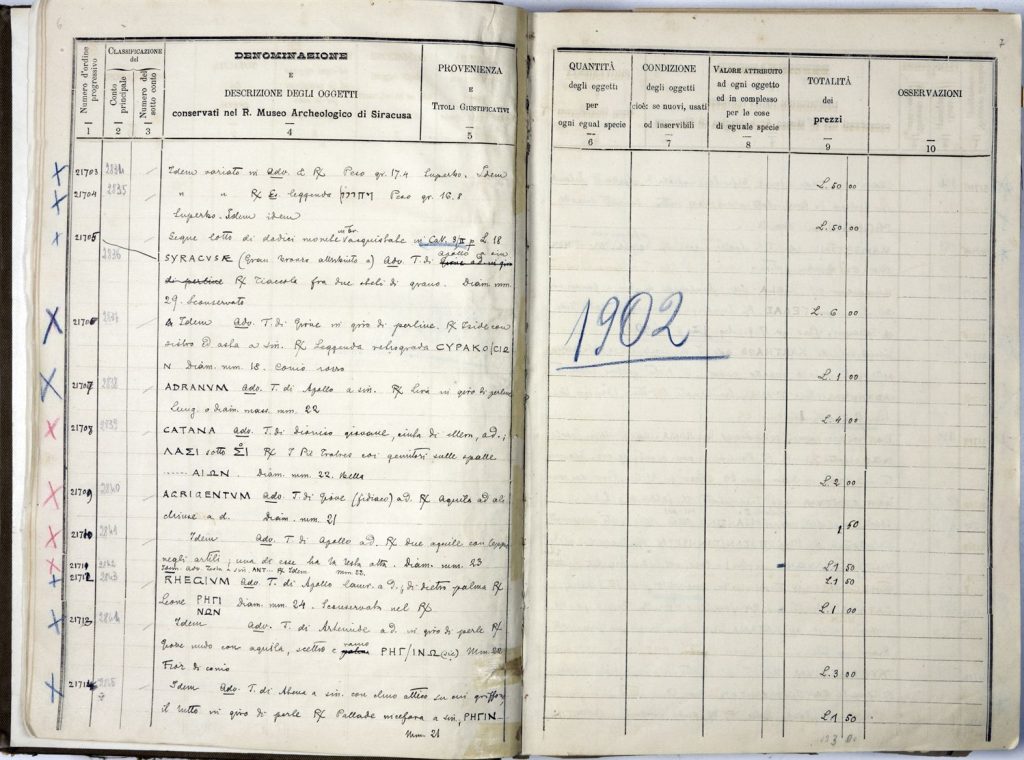 6
Numero d'ordine progressivo
CLASSIFICAZIONE
del
Conto principale
Numero del sotto conto
DENOMINAZIONE
E
DESCRIZIONE DEGLI OGGETTI
conservati nel R. Museo Archeologico di Siracusa
PROVENIENZA
E
TITOLI GIUSTIFICATIVI
1 2 3 4 5
21703 2834 Idem variato in Adv. e R/ Peso gr. 17.4 Superbo. Idem
21704 2835 " " R/ leggenda Peso gr. 16.8
Superbo. Idem idem
21705 Segue lotto di dodici monete acquistate in
2836 SYRACUSÆ (Gran bronzo attribuito a) Adv. T. di Apollo a sin
di perline R/ Fiaccola fra due steli di grano. Diam. mm.
29. Sconservato
21706 2837 Idem Adv. T. di Giove in giro di perline. R/ Iside con
sistro ed asta a sin. R/ Leggenda retrograda CYPAKO/CIΩ
N Diam. mm. 18. Conio rosso
21707 2838 ADRANVM Adv. T. di Apollo a sin. R/ Lira in giro di perline
Lung. o diam. mass. mm. 22
21708 2839 CATANA Adv. T. di dioniso giovane, cinta di ellera, a d.;
ΛΑΣΙ sotto R/ I Pii fratres coi genitori sulle spalle
...... ΑΙΩΝ. Diam. mm. 22. Bella
21709 2840 AGRIGENTVM Adv. T. di Giove (fidiaco) a d. R/ Aquila ad ali
chiuse a d. Diam. mm. 21
21710 2841 Idem Adv. T. di Apollo a d. R/ due aquile con lepre
negli artili; una di esse ha la testa alta. Diam. mm. 23
21711 2842 Idem Adv. Testa a sin. ANT... R/ Idem mm. 22.
21712 2843 RHEGIVM Adv. T. di Apollo laur. a d.; di dietro palma R/
Leone ΡΗΓΙ ΝΩΝ Diam. mm. 24. Sconservata nel R/
21713 2844 Idem Adv. T. di Artemide a d. in giro di perle R/
Giove nudo con aquila, scettro e ramo ΡΗΓ/ΙΝΩ (sic) Mm. 22
Fior di conio
21714 2845 Idem Adv. T. di Atena a sin. con elmo attico su cui griffone,
il tutto in giro di perle R/ Pallade nicefora a sin, ΡΗΓΙΝ
Mm. 21
7
QUANTITÀ
degli oggetti
per
ogni egual specie
CONDIZIONE
degli oggetti
cioè: se nuovi, usati
od inservibili
VALORE ATTRIBUITO
ad ogni oggetto
ed in complesso
per le cose
di eguale specie
TOTALITÀ
dei
prezzi
OSSERVAZIONI
6 7 8 9 10
L. 50 00
L. 50 00
1902
L. 6 00
L. 1 00
L. 4 00
L. 2 00
1 50
L. 1 50
L. 1 50
L. 1 00
L. 3 00
L. 1 50